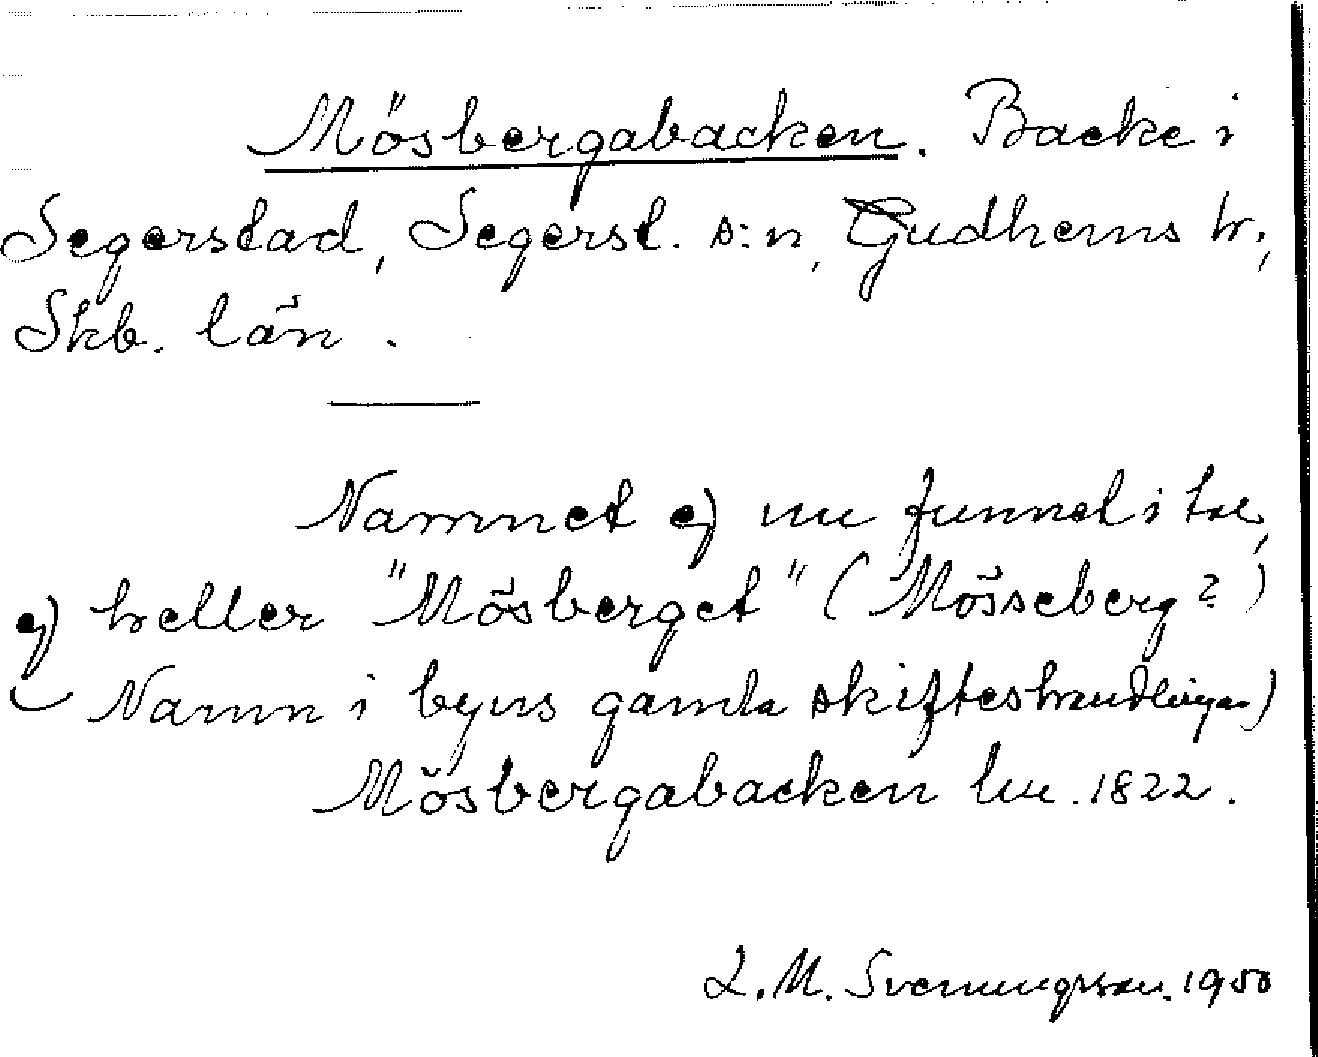 Mösbergabacken. Backe i
Segerstad, Segerst. s:n, Gudhems hr,
Skb. län.
Namnet ej nu funnet i tal,
ej heller "Mösberget" (Mösseberg?)
Namn i byns gamla skifteshandlingar)
Mösbergabacken lm. 1822.
L. M. Svenungsson. 1950